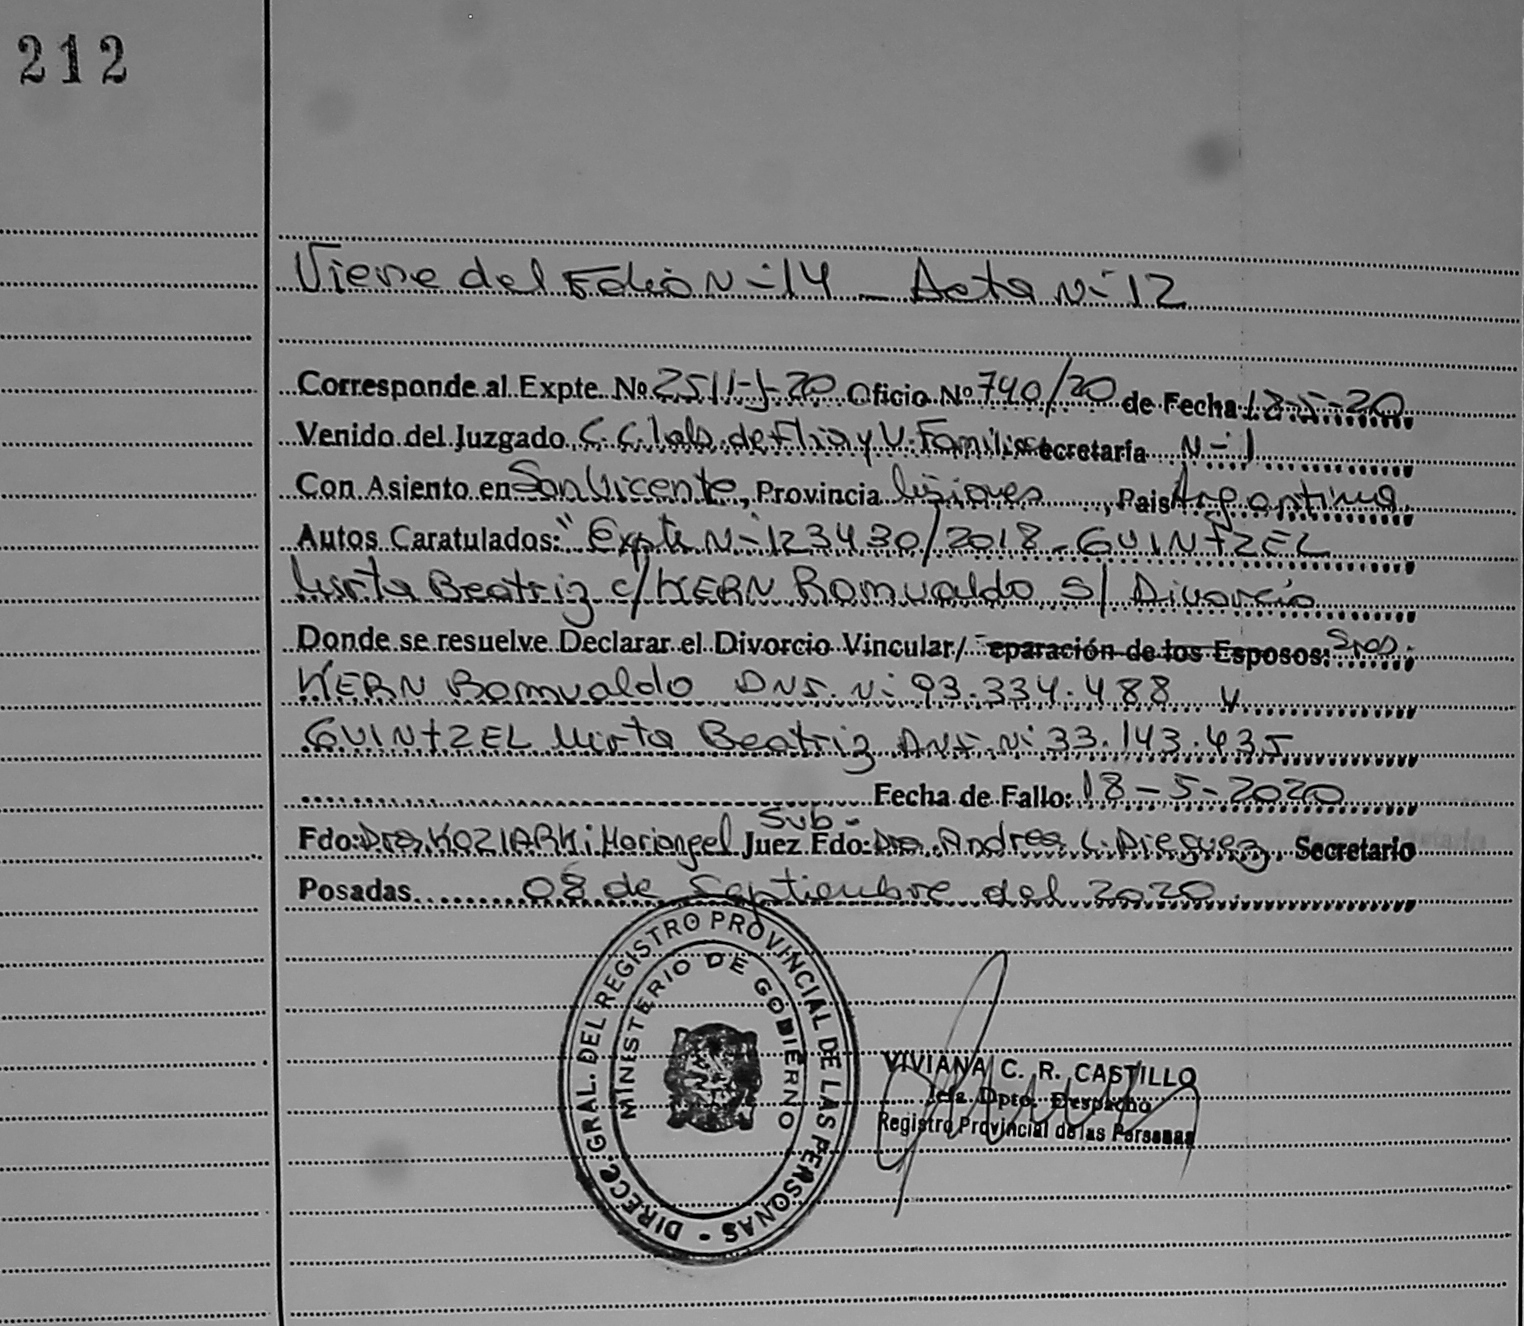 212
Viene del Folio N-14 _ Acta N-12
Corresponde al Expte. Nº 2511-J-20 Oficio Nº 740/20 de Fecha 18-5-20
Venido del Juzgado C.C. Lab. de Flia y V. Famili Secretaria N-1
Con Asiento en San Vicente, Provincia Misiones, Pais Argentina
Autos Caratulados: "Expte N-123430/2018-GUINTZEL
Mirta Beatriz c/ KERN Romualdo S/ Divorcio
Donde se resuelve Declarar el Divorcio Vincular/ Separación de los Esposos: Sres.
KERN Romualdo DNI. N: 93.334.488 y
GUINTZEL Mirta Beatriz DNI. N: 33.143.435
Fecha de Fallo: 18-5-2020
Sub-
Fdo: Dra. KOZIARKi Mariangel Juez Fdo: Dra. Andrea L. Dieguez Secretario
Posadas 08 de Septiembre del 2020.
DIRECC. GRAL. DEL REGISTRO PROVINCIAL DE LAS PERSONAS -
MINISTERIO DE GOBIERNO
VIVIANA C. R. CASTILLO
Jefa Dpto. Despacho
Registro Provincial de las Personas